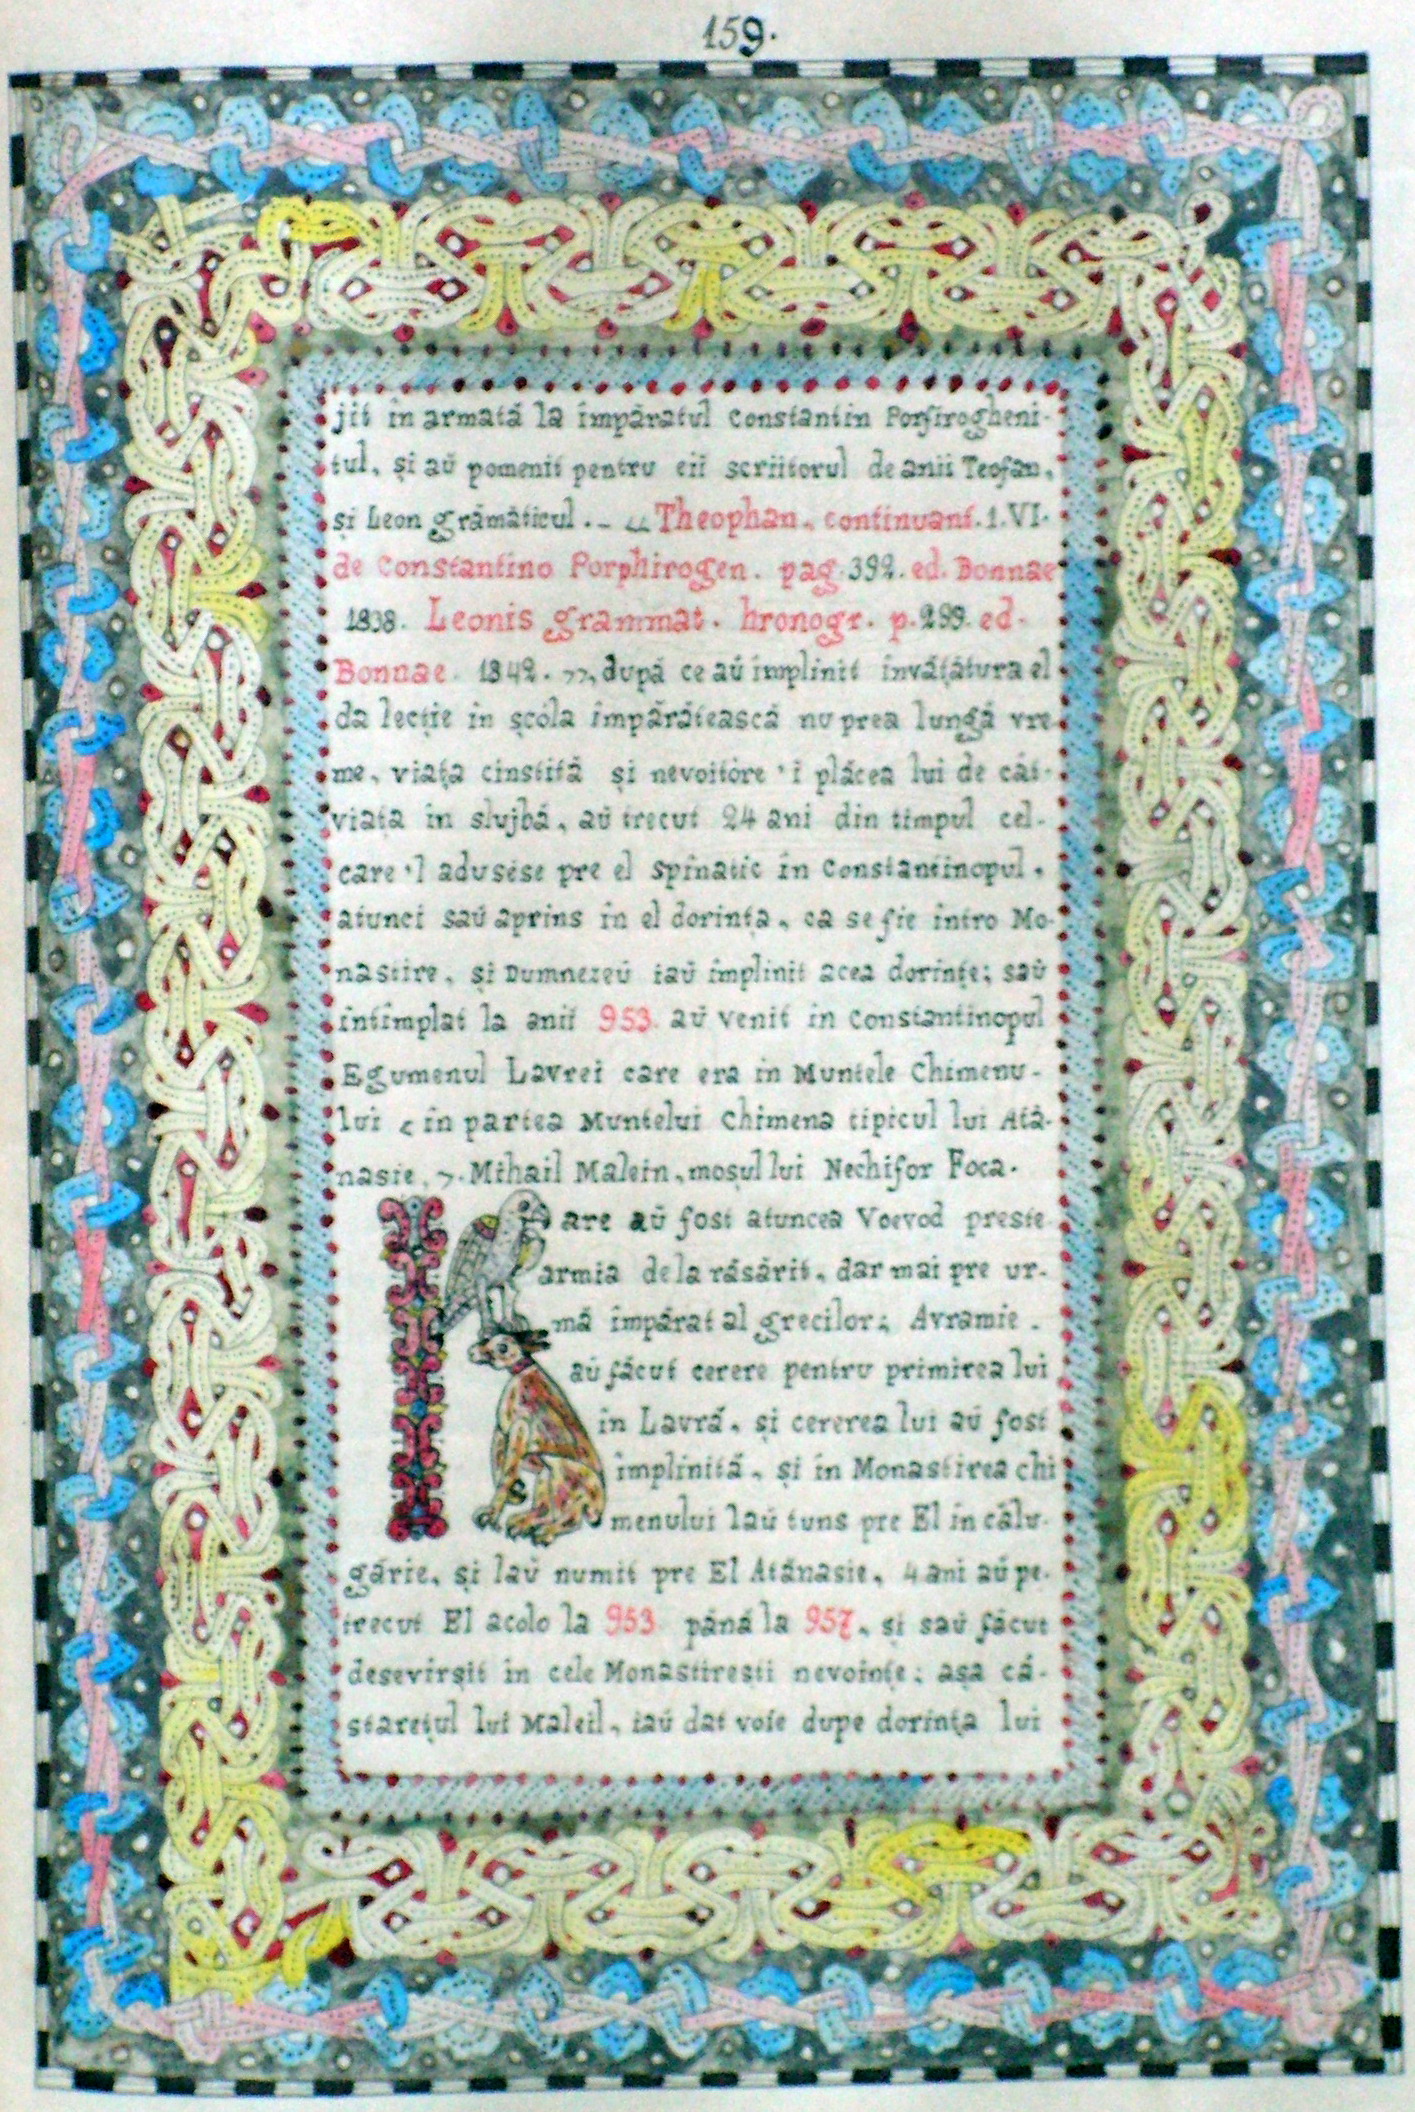 159.
jit în armată la împăratul Constantin Porfirogheni-
tul, și aŭ pomenit pentru eii scriitorul de anii Teofan,
și Leon grămăticul. – „Theophan, continuant. l. VI.
de Constantino Porphirogen. pag. 392. ed. Bonnae
1838. Leonis grammat. hronogr. p. 299. ed.
Bonnae. 1842. ”, după ce aŭ implinit învățătura el
da lecție in școla împărătească nu prea lungă vre-
me, viața cinstită și nevoitóre 'i plăcea lui de cât-
viața in slujbă, aŭ trecut 24 ani din timpul cel-
care 'l adusese pre el Spinatic în Constantinopul,
atunci saŭ aprins în el dorința, ca se fie intro Mo-
nastire, și Dumnezeŭ iaŭ implinit acea dorințe; saŭ
întîmplat la anii 953 aŭ venit in Constantinopul
Egumenul Lavrei care era in Muntele Chimenu-
lui < in partea Muntelui Chimena tipicul lui Ată-
nasie, >. Mihail Malein, moșul lui Nechifor Foca.
Kare aŭ fost atuncea Voevod preste
armia dela răsărit, dar mai pre ur-
mă împărat al grecilor; Avramie.
aŭ făcut cerere pentru primirea lui
în Lavră, și cererea lui aŭ fost
împlinită, și în Monastirea chi
menului laŭ tuns pre El in călu-
gărie, și laŭ numit pre El Atănasie, 4 ani aŭ pe-
trecut El acolo la 953 până la 957, și saŭ făcut
desevirșit in cele Monastirești nevoințe; așa că-
starețul lui Maleil, iaŭ dat voie dupe dorința lui